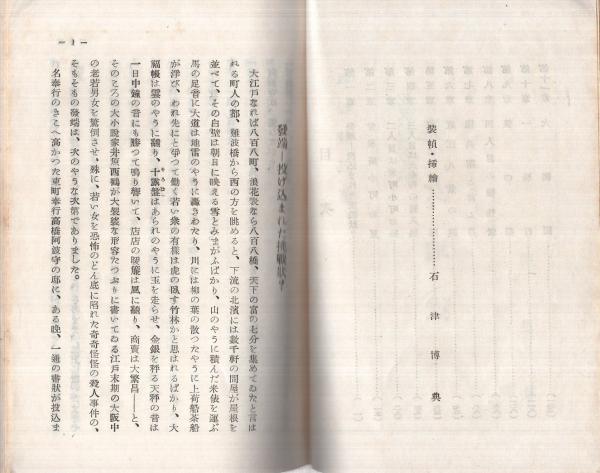 裝幀・挿繪…………………石津博典
發端―投げ込まれた挑戰狀！
大江戸なれば八百八町、浪花表なら八百八橋、天下の富の七分を集めてゐたと言は
れる町人の都、難波橋から西の方を眺めると、下流の北濱には數千軒の問屋が屋根を
並べて、その白壁は朝日に映える雪とみまがふばかり、山のやうに積んだ米俵を運ぶ
馬の足音に大道は地雷のやうに轟きわたり、川には柳の葉の散つたやうに上荷船茶船
が浮び、われ先にと爭つて働く若い衆の有樣は虎の臥す竹林かと思はれるばかり、大
福帳は雲のやうに飜り、十露盤はあられのやうに玉を走らせ、金銀を秤る天秤の音は
一日中鐘の音にも勝つて鳴り響いて、店店の暖簾は風に飜り、商賣は大繁昌――と、
そのころの大小説家井原西鶴が大袈裟な形容たつぷりに書いてゐる江戸末期の大阪中
の老若男女を驚倒させ、殊に、若い女を恐怖のどん底に陷れた奇奇怪怪の殺人事件の、
そもそもの發端は、次のやうな次第でありました。
名奉行のきこへ高かつた東町奉行高橋阿波守の邸に、ある晩、一通の書狀が投込ま
― 1 ―